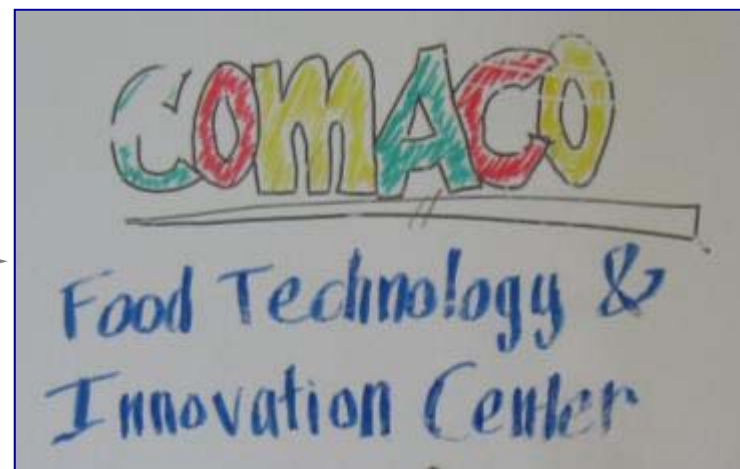 COMACO
Food Technology &
Innovation Center